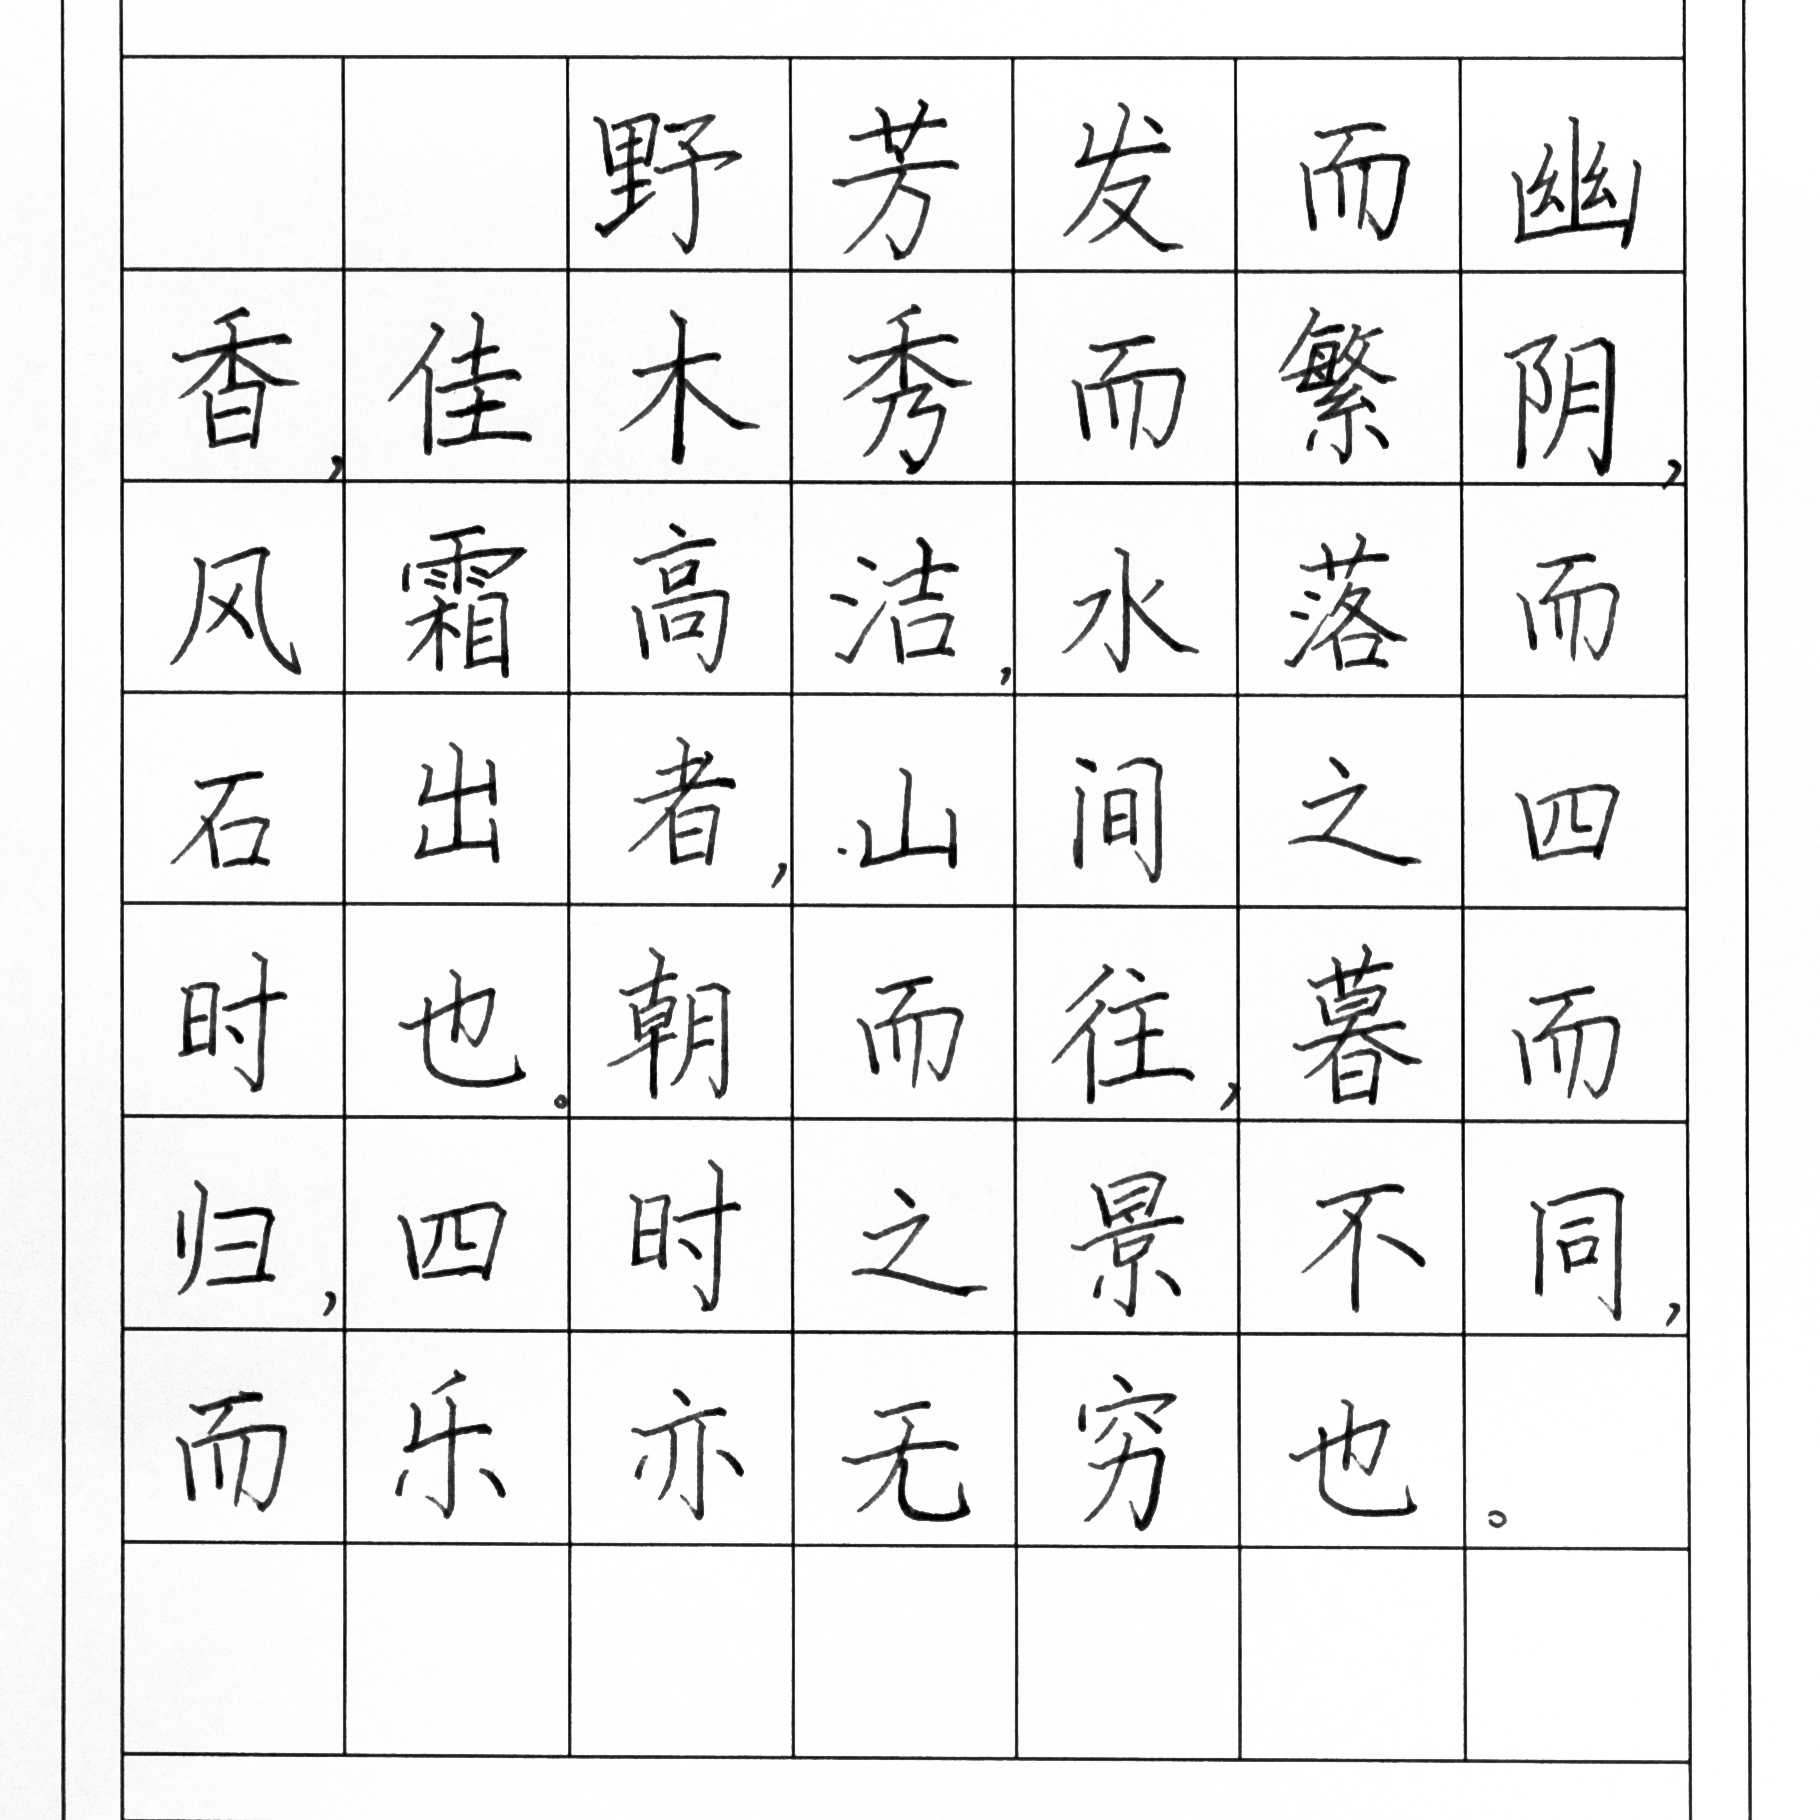 野芳发而幽
香，佳木秀而繁阴，
风霜高洁，水落而
石出者，山间之四
时也。朝而往，暮而
归，四时之景不同，
而乐亦无穷也。